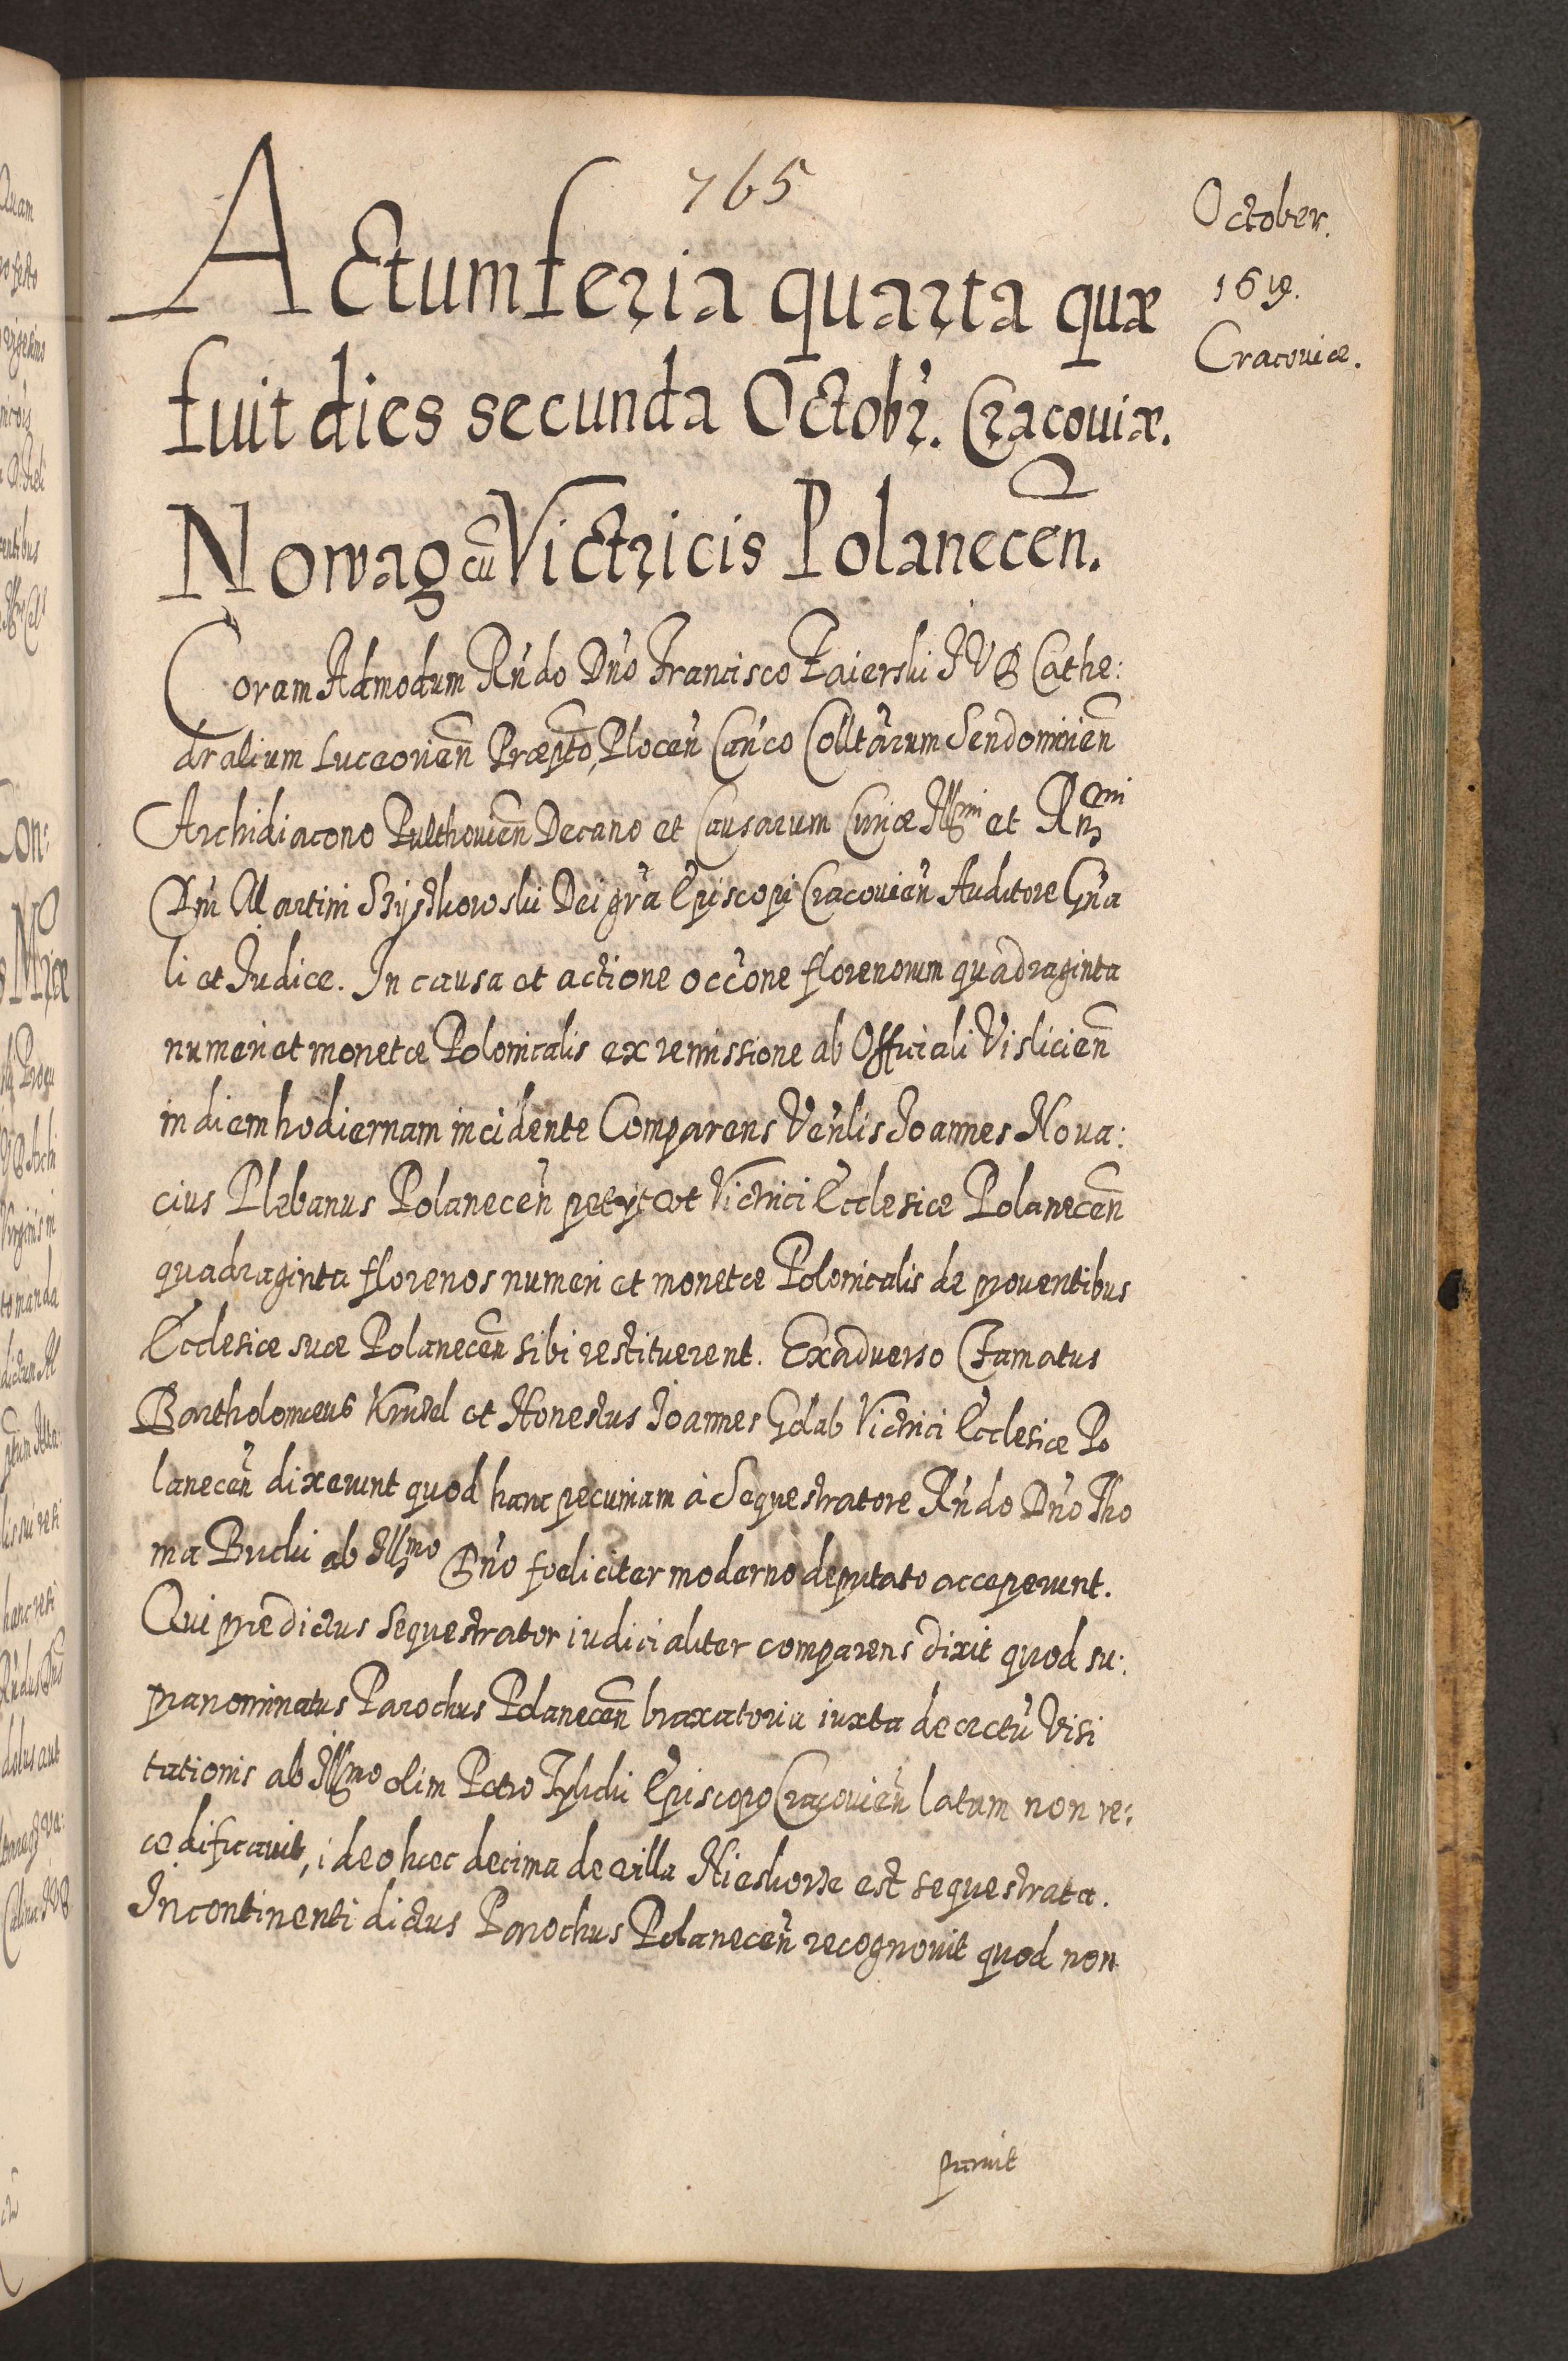 765
October.
1619.
Cracouiæ.
Actum feria quarta quæ
fuit dies secunda Octobr. Cracouiæ.
Nowag cu Victricis Polanecen.
Coram Admodum Rndo Dno Francisco Zaierski I V D Cathe:
dralium Luceorien Præpto, Plocen Canco Colltarum Sendomirien
Archidiacono Pulthouien Decano et Causarum Curiæ Illmi et Rnmi
Dni Martini Szyszkowski Dei gra Episcopi Cracouien Auditore Gna
li et Iudice. In causa et actione occone florenorum quadraginta
numeri et monetæ Polonicalis ex remissione ab Officiali Vislicien
in diem hodiernam incidente Comparens Venlis Joannes Noua:
cius Plebanus Polanecen petyt ut Victrici Ecclesiæ Polanecen
quadraginta florenos numeri et monetæ Polonicalis de prouentibus
Ecclesiæ suæ Polanecen sibi restituerent. Exaduerso Famatus
Bartholomæus et Honestus Joannes Golab Victrici Ecclesiæ Po
lanecen dixerunt quod hanc pecuniam à Sequestratore Rndo Dno Tho
ma ab Illmo Dno fœliciter moderno deputato acceperunt.
Qui prædictus Sequestrator iudicialiter comparens dixit quod su:
pranominatus Parochus Polanecen braxatoria iuxta decretu Visi
tationis ab Illmo olim Petro Tylicki Episcopo Cracouien latum non re:
ædificauit, ideo hæc decima de villa est sequestrata.
Incontinenti dictus Parochus Polanecen recognouit quod non
paruit